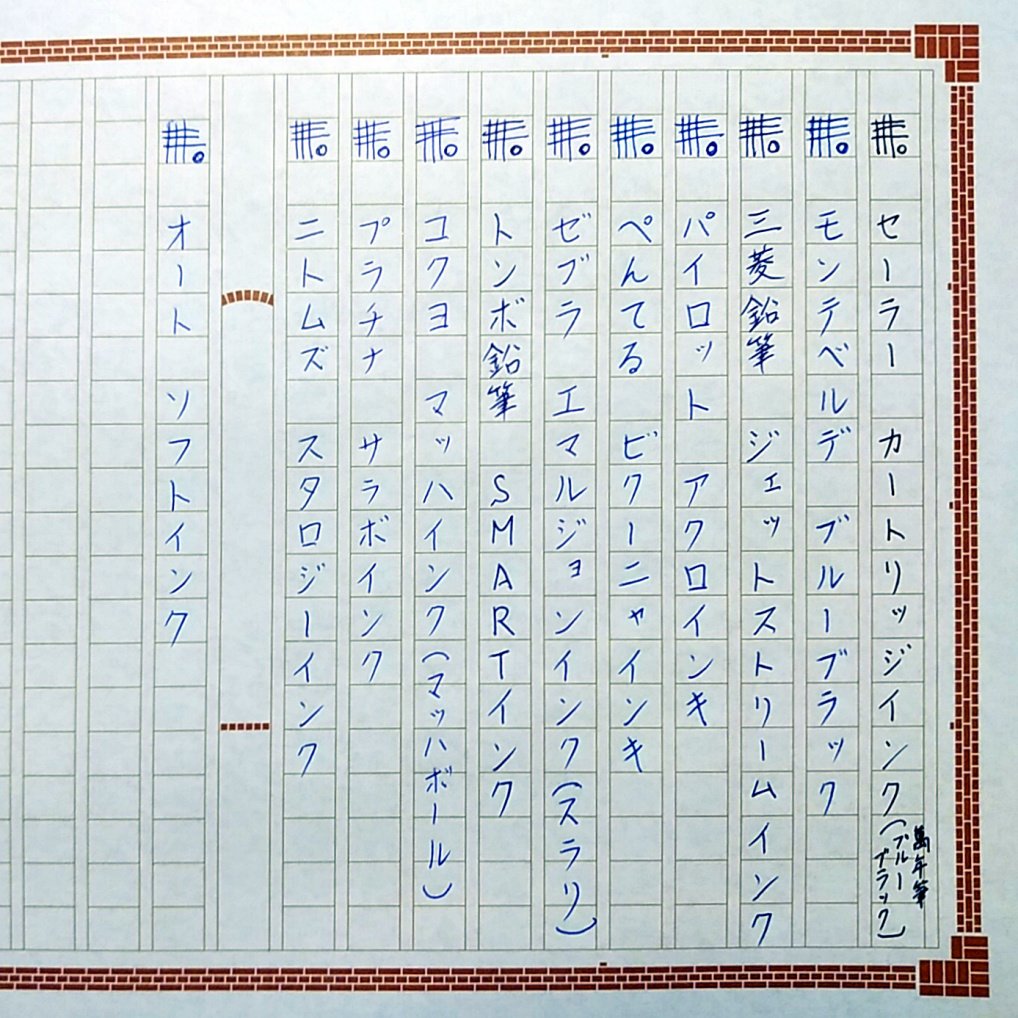 セーラー カートリッジインク(ブルーブラック) 萬年筆
モンテベルデ ブルーブラック
三菱鉛筆 ジェットストリームインク
パイロット アクロインキ
ぺんてる ビクーニャインキ
ゼブラ エマルジョンインク(スラリ)
トンボ鉛筆 SMARTインク
コクヨ マッハインク(マッハボール)
プラチナ サラボインク
ニトムズ スタロジーインク
オート ソフトインク